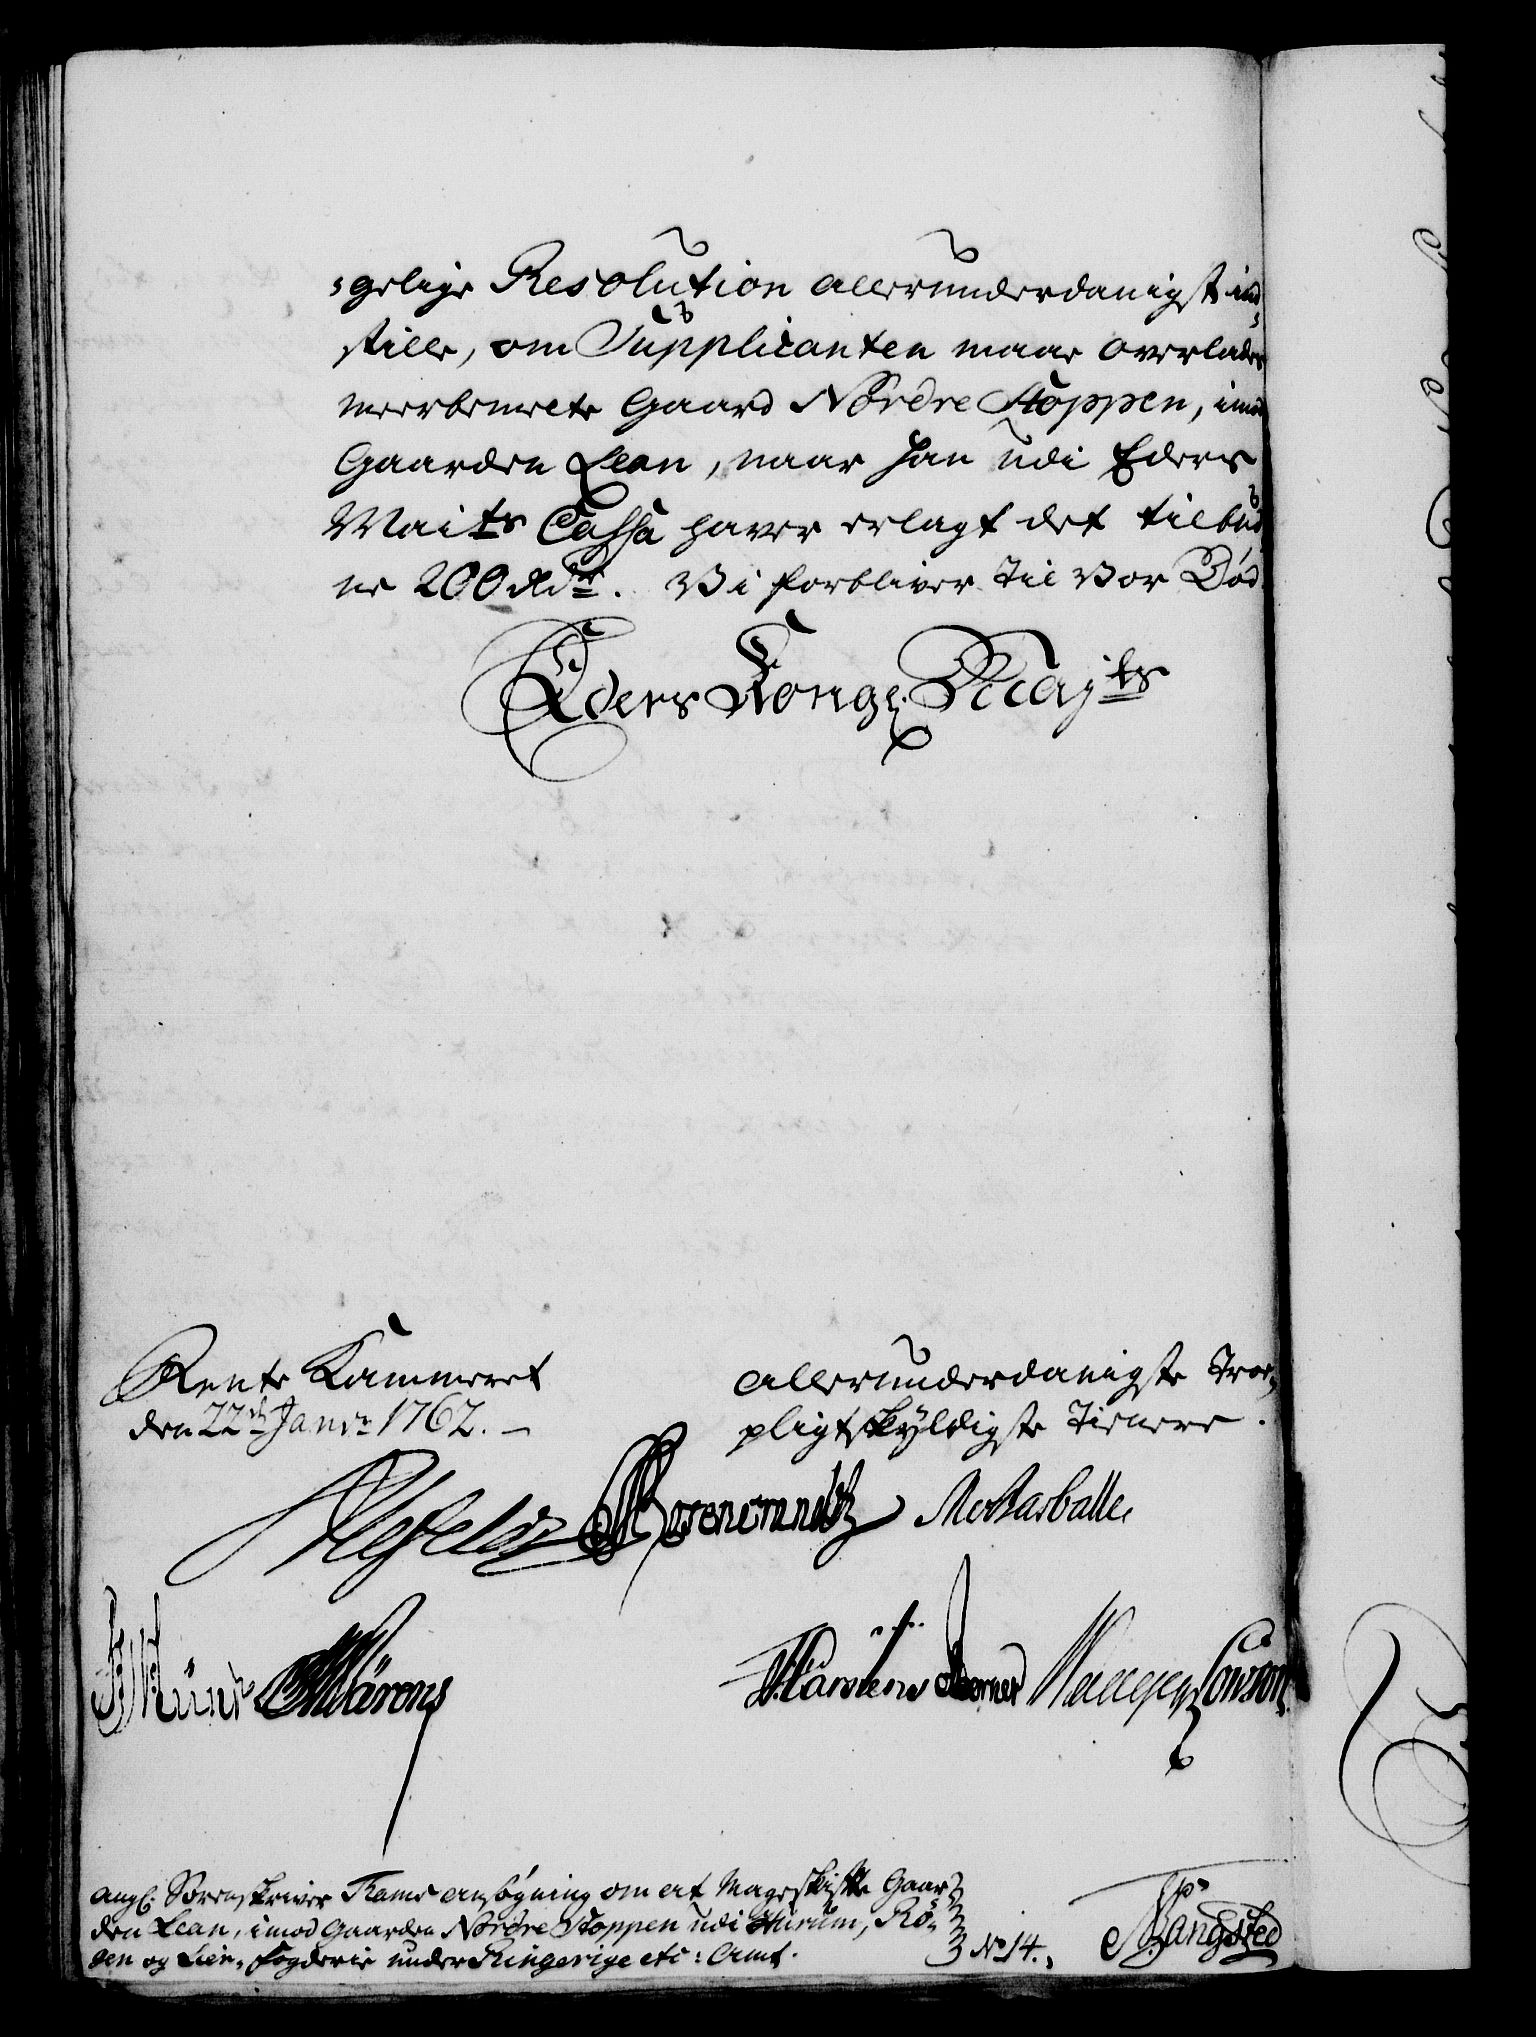 -gelige Resolution allerunderdanigst ind-
stille, om Supplicanten maae overlades
meerbemelte Gaard Nordre Stoppen, imod
Gaarden Lean, naar han udi Eders
Maits Cassa haver erlagt det tilbud-
ne 200 Rdr. Vi forbliver til Vor Død
Eders Kongl. Mayts
Rente Kammeret
den 22de Janv. 1762.
allerunderdanigste troe-
pligtskyldigste Tienere.
angl. Sorenskriver Rams ansøgning om at Mageskifte Gaar-
den Lean, imod Gaarden Nordre Stoppen udi Hurum, Rø-
gen og Lier, fogderie under Ringerige etc: Amt.
No 14.
Bangsted